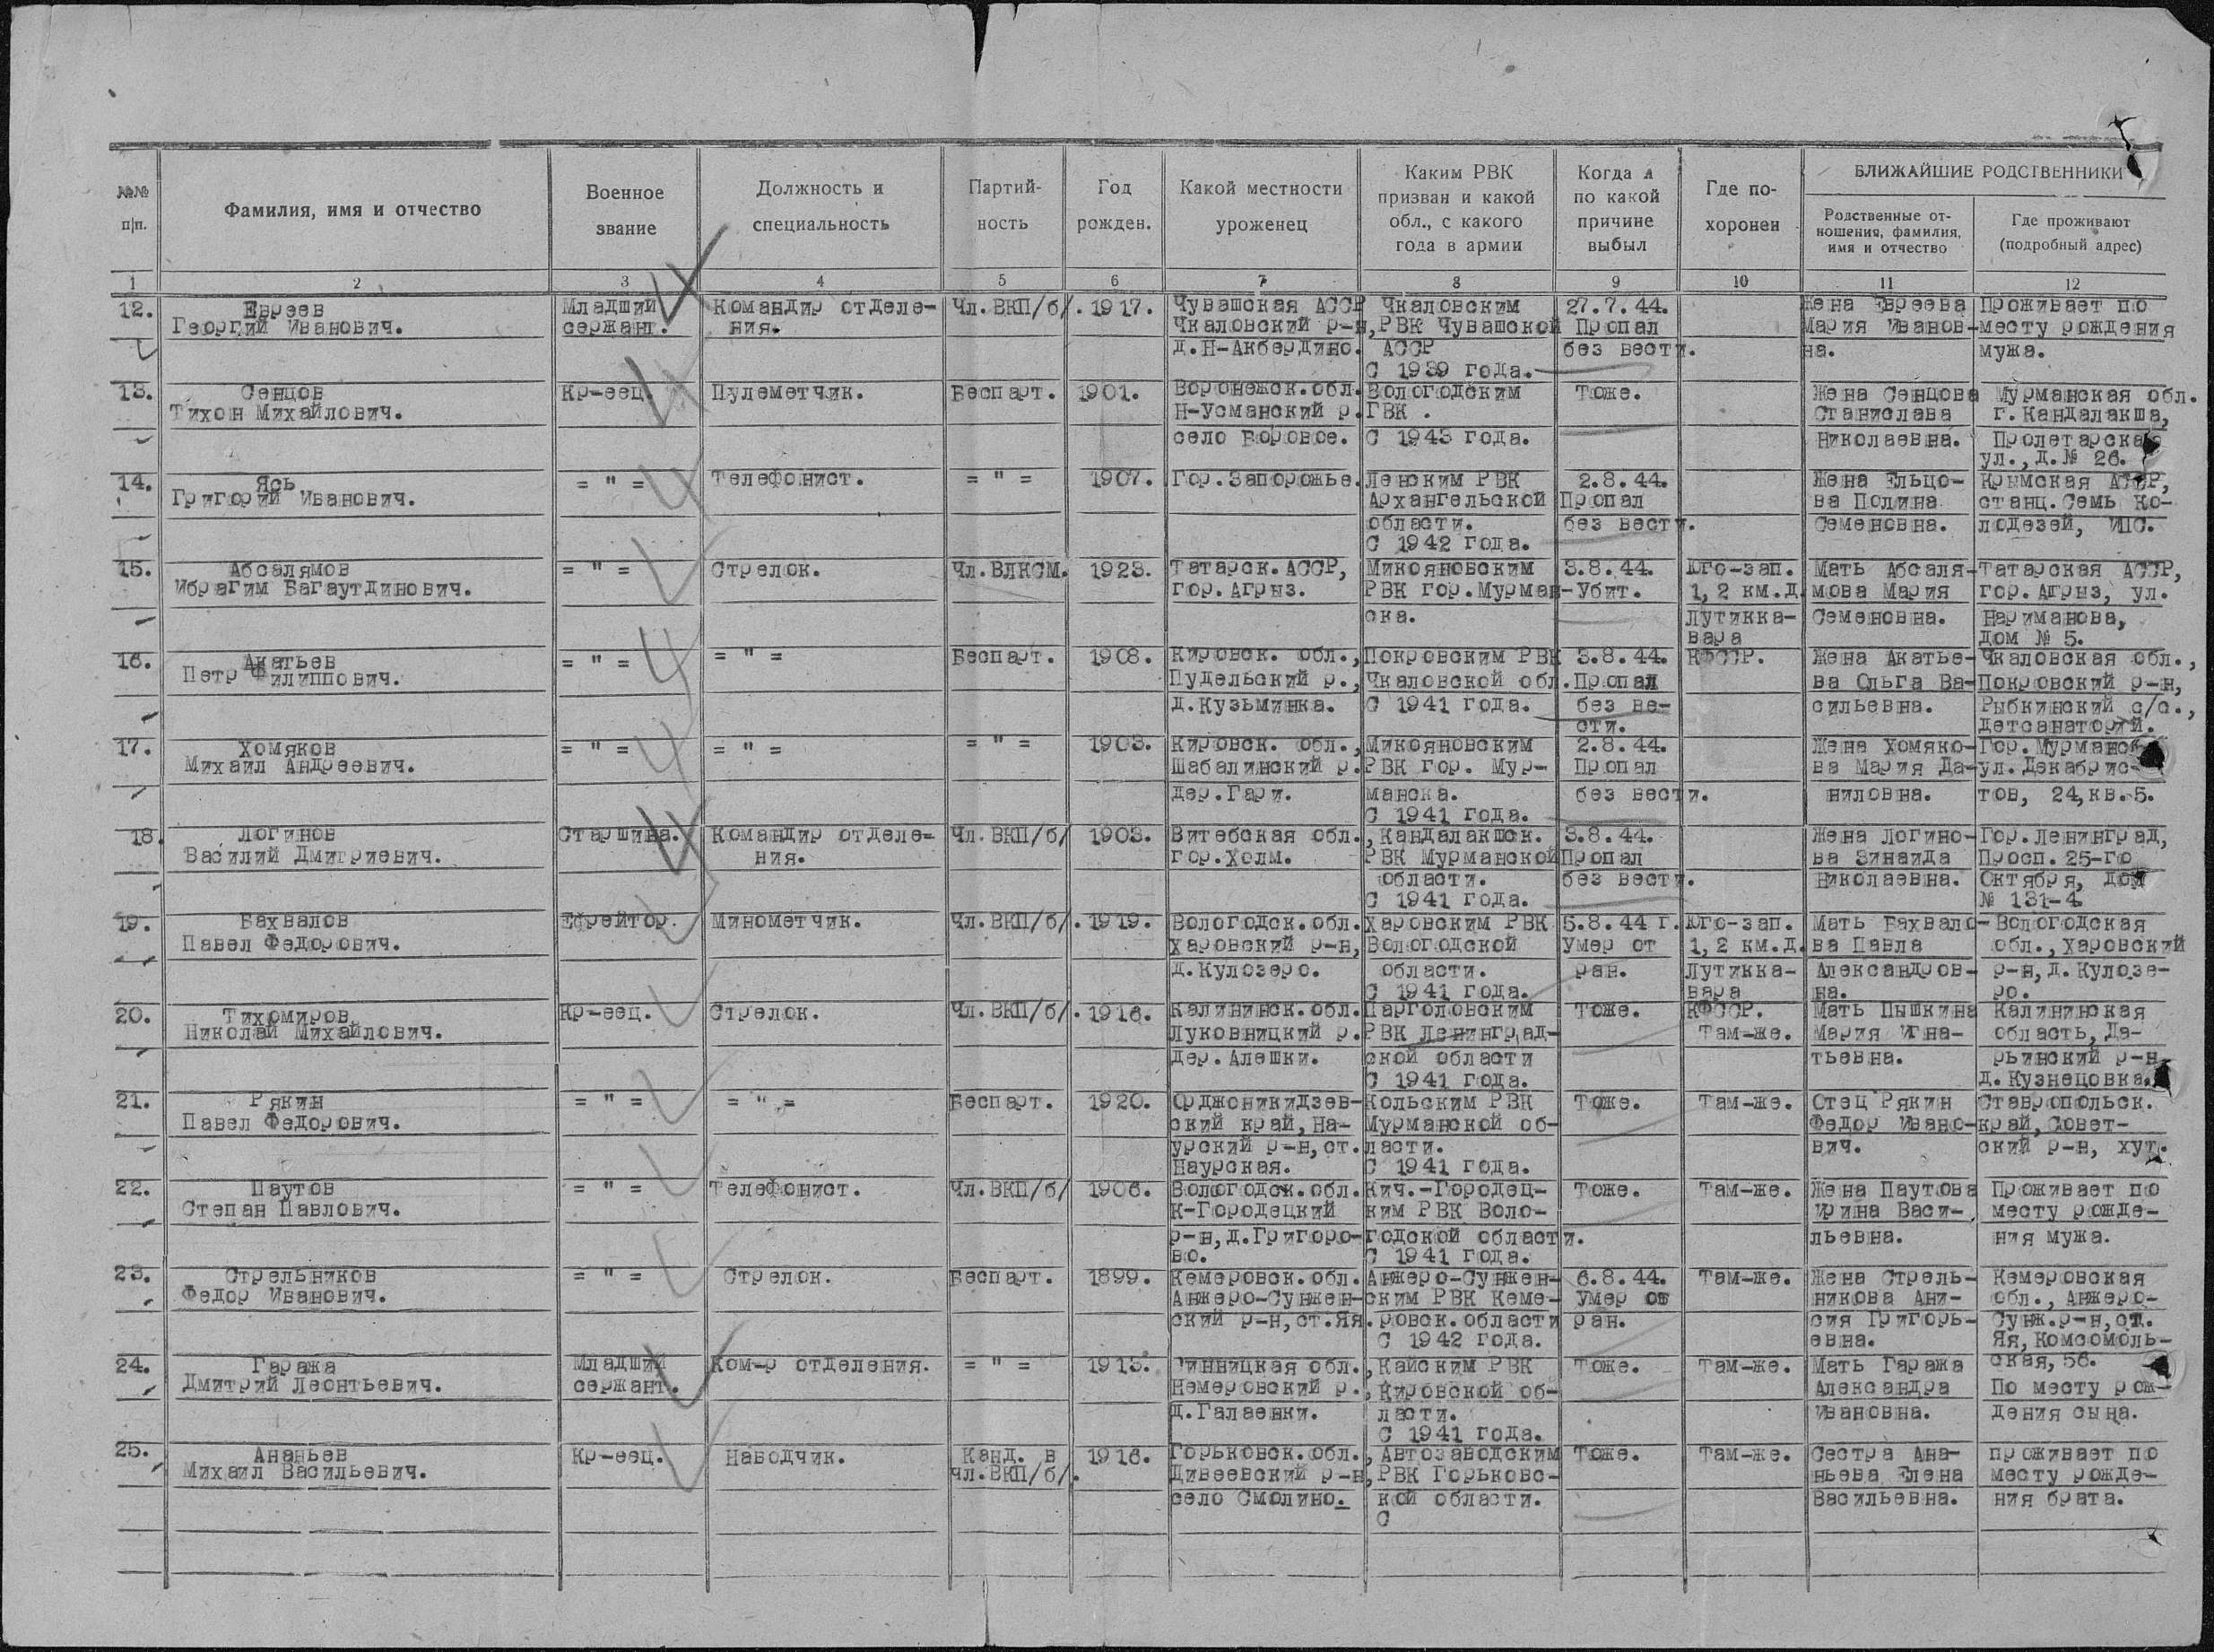 №№ п|п.
Фамилия, имя и отчество
Военное звание
Должность и специальность
Партий- ность
Год рожден.
Какой местности уроженец
Каким РВК призван и какой обл., с какого года в армии
Когда и по какой причине выбыл
Где по- хоронен
БЛИЖАЙШИЕ РОДСТВЕННИКИ
Родственные от- ношения, фамилия, имя и отчество
Где проживают (подробный адрес)
1 2 3 4 5 6 7 8 9 10 11 12
12. Евреев Младший Командир отделе- Чл.ВКП/б/. 1917. Чувашская АССР Чкаловским 27.7.44. Жена Евреева Проживает по
Георгий Иванович. сержант. ния. Чкаловский р-н, РВК Чувашской Пропал Мария Иванов- месту рождения
д.Н-Акбердино. АССР без вести. на. мужа.
С 1939 года.
13. Сенцов Кр-еец. Пулеметчик. Беспарт. 1901. Воронежск.обл. Вологодским Тоже. Жена Сенцова Мурманская обл.
Тихон Михайлович. Н-Усманский р. ГВК . Станислава г.Кандалакша,
село Боровое. С 1943 года. Николаевна. Пролетарская
ул., д.№ 26.
14. Ясь = " = Телефонист. = " = 1907. Гор.Запорожье. Ленским РВК 2.8.44. Жена Ельцо- Крымская АССР,
Григорий Иванович. Архангельской Пропал ва Полина станц.Семь Ко-
области. без вести. Семеновна. лодезей, ИПС.
С 1942 года.
15. Абсалямов = " = Стрелок. Чл.ВЛКСМ. 1923. Татарск.АССР, Микояновским 3.8.44. Юго-зап. Мать Абсаля- Татарская АССР,
Ибрагим Багаутдинович. гор.Агрыз. РВК гор.Мурман- Убит. 1,2 км.д. мова Мария гор.Агрыз, ул.
ска. Лутикка- Семеновна. Нариманова,
вара дом № 5.
16. Акатьев = " = = " = Беспарт. 1908. Кировск. обл., Покровским РВК 3.8.44. КФССР. Жена Акатье- Чкаловская обл.,
Петр Филиппович. Пудельский р., Чкаловской обл. Пропал ва Ольга Ва- Покровский р-н,
д.Кузьминка. С 1941 года. без ве- сильевна. Рыбкинский с/с.,
сти. детсанаторий.
17. Хомяков = " = = " = = " = 1903. Кировск. обл., Микояновским 2.8.44. Жена Хомяко- Гор.Мурманск
Михаил Андреевич. Шабалинский р. РВК гор. Мур- Пропал ва Мария Да- ул.Декабрис-
дер.Гари. манска. без вести. ниловна. тов, 24,кв.5.
С 1941 года.
18. Логинов Старшина. Командир отделе- Чл.ВКП/б/ 1903. Витебская обл., Кандалакшск. 3.8.44. Жена Логино- Гор.Ленинград,
Василий Дмитриевич. ния. гор.Холм. РВК Мурманской Пропал ва Зинаида Просп.25-го
области. без вести. Николаевна. Октября, дом
С 1941 года. № 131-4.
19. Бахвалов Ефрейтор. Минометчик. Чл.ВКП/б/. 1919. Вологодск.обл. Харовским РВК 5.8.44 г. Юго-зап. Мать Бахвало- Вологодская
Павел Федорович. Харовский р-н, Вологодской Умер от 1,2 км.д. ва Павла обл.,Харовский
д.Кулозеро. области. ран. Лутикка- Александров- р-н,д.Кулозе-
С 1941 года. вара на. ро.
20. Тихомиров Кр-еец. Стрелок. Чл.ВКП/б/. 1916. Калининск.обл. Парголовским Тоже. КФССР. Мать Пышкина Калининская
Николай Михайлович. Луковницкий р. РВК Ленинград- Там-же. Мария Игна- область, Да-
дер.Алешки. ской области тьевна. рьинский р-н
С 1941 года. д.Кузнецовка.
21. Рякин = " = = " = Беспарт. 1920. Орджоникидзев- Кольским РВК Тоже. Там-же. Отец Рякин Ставропольск.
Павел Федорович. ский край,На- Мурманской об- Федор Ивано- край,Совет-
урский р-н,ст. ласти. вич. ский р-н, хут.
Наурская. С 1941 года.
22. Паутов = " = Телефонист. Чл.ВКП/б/ 1906. Вологодск.обл. Кич.-Городец- Тоже. Там-же. Жена Паутова Проживает по
Степан Павлович. К-Городецкий ким РВК Воло- Ирина Васи- месту рожде-
р-н,д.Григоро- годской области. льевна. ния мужа.
во. С 1941 года.
23. Стрельников = " = Стрелок. Беспарт. 1899. Кемеровск.обл. Анжеро-Сунжен- 6.8.44. Там-же. Жена Стрель- Кемеровская
Федор Иванович. Анжеро-Сунжен- ским РВК Кеме- Умер от никова Ани- обл., Анжеро-
ский р-н,ст.Яя. ровск.области ран. сия Григорь- Сунж.р-н,ст.
С 1942 года. евна. Яя,Комсомоль-
ская,56.
24. Гаража Младший Ком-р отделения. = " = 1913. Винницкая обл., Кайским РВК Тоже. Там-же. Мать Гаража
Дмитрий Леонтьевич. сержант. Немеровский р., Кировской об- Александра По месту рож-
д.Галаенки. ласти. Ивановна. дения сына.
С 1941 года.
25. Ананьев Кр-еец. Наводчик. Канд. в 1916. Горьковск.обл., Автозаводским Тоже. Там-же. Сестра Ана- проживает по
Михаил Васильевич. чл.ВКП/б/. Дивеевский р-н, РВК Горьковс- ньева Елена месту рожде-
село Смолино. кой области. Васильевна. ния брата.
С